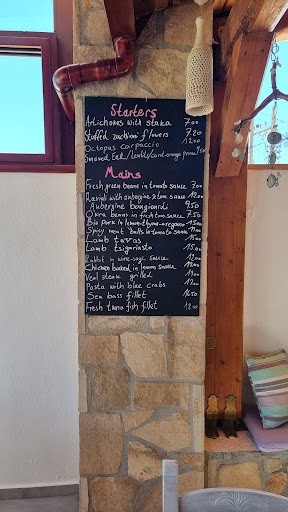 Starters
Artichokes with staka 7.00
Stuffed zucchini flowers 7.20
Octopus carpaccio 12.00
Smoked Eel/ 9.50
Mains
Fresh green beans in tomato sauce 7.00
Ravioli with aubergine & tom sauce 12.00
Aubergine bongiordi 9.50
Okra beans in fresh tom sauce 7.50
Bio pork in lemon-thyme-oregano
Spicy meat balls in tomato sauce
Lamb tavas
Lamb tsigariasto
Rabbit in wine-sage sauce
Chicken baked in lemon sauce
Veal steak grilled
Pasta with blue crabs
Sea bass fillet 16.50
Fresh tuna fish fillet 18.00